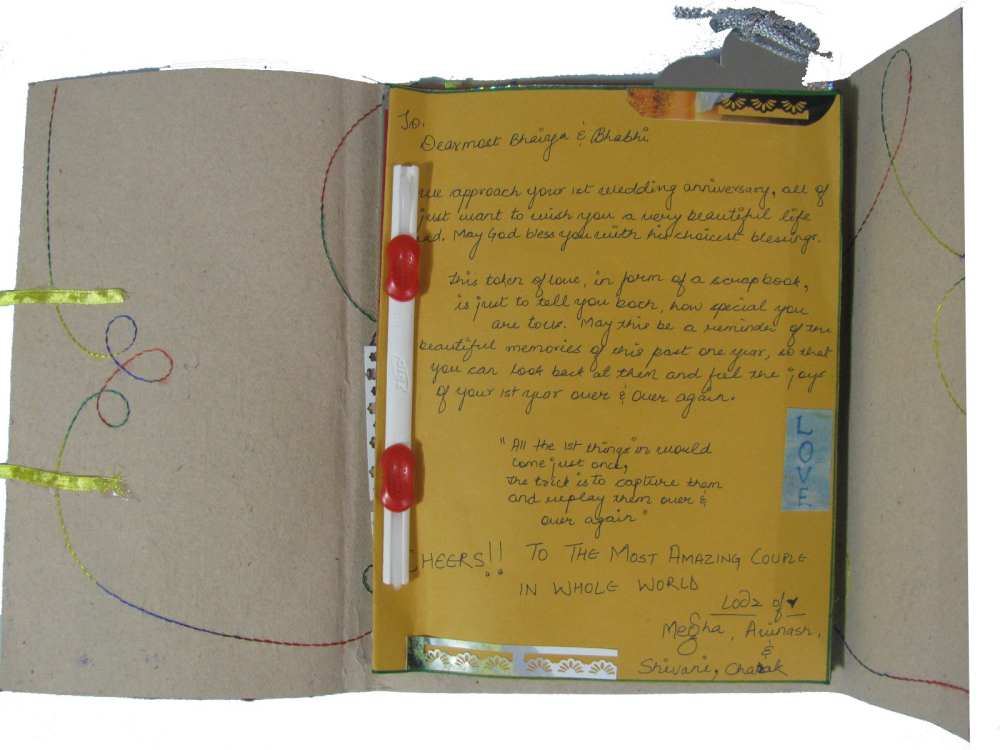 To,
Dearmost Bhaiya & Bhabhi
we approach your 1st wedding anniversary, all of
just want to wish you a very beautiful life
. May God bless you with his choicest blessings.
This token of love, in form of a scrapbook,
is just to tell you both, how special you
are to us. May this be a reminder of the
beautiful memories of this past one year, so that
you can look back at them and feel the joys
of your 1st year over & over again.
"All the 1st things in world
come just once,
The trick is to capture them
and replay them over &
over again"
LOVE
CHEERS!! TO THE MOST AMAZING COUPLE
IN WHOLE WORLD
Lodz of
Megha, Avinash,
&
Shivani, Charak